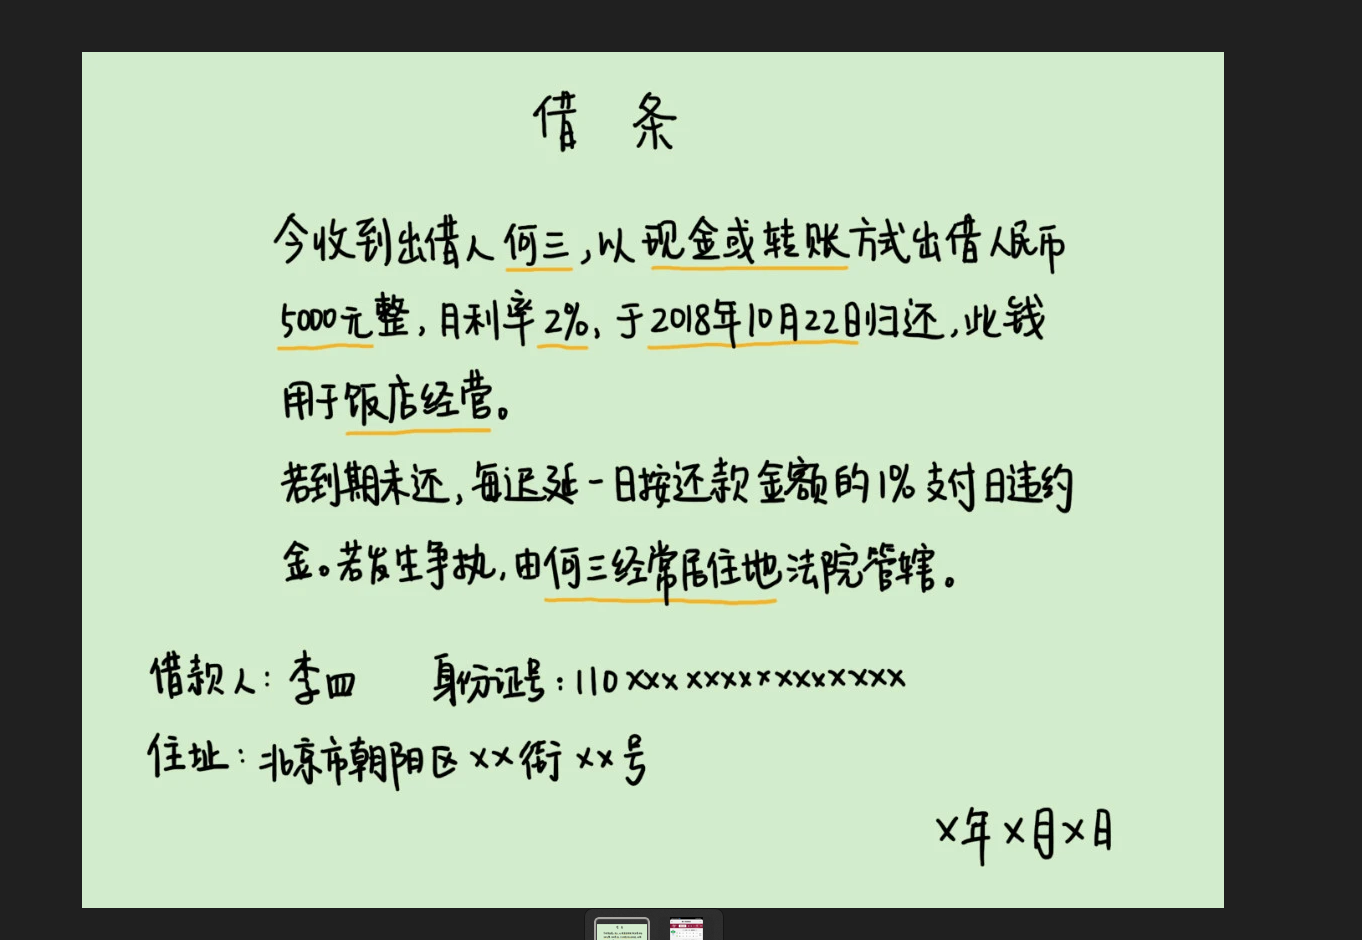 借 条
今收到出借人何三,以现金或转账方式出借人民币
5000元整,月利率2%,于2018年10月22日归还,此钱
用于饭店经营。
若到期未还,每迟延一日按还款金额的1%支付日违约
金。若发生争执,由何三经常居住地法院管辖。
借款人:李四 身份证号:110xxxxxxxxxxxxxxx
住址:北京市朝阳区xx街xx号
x年x月x日